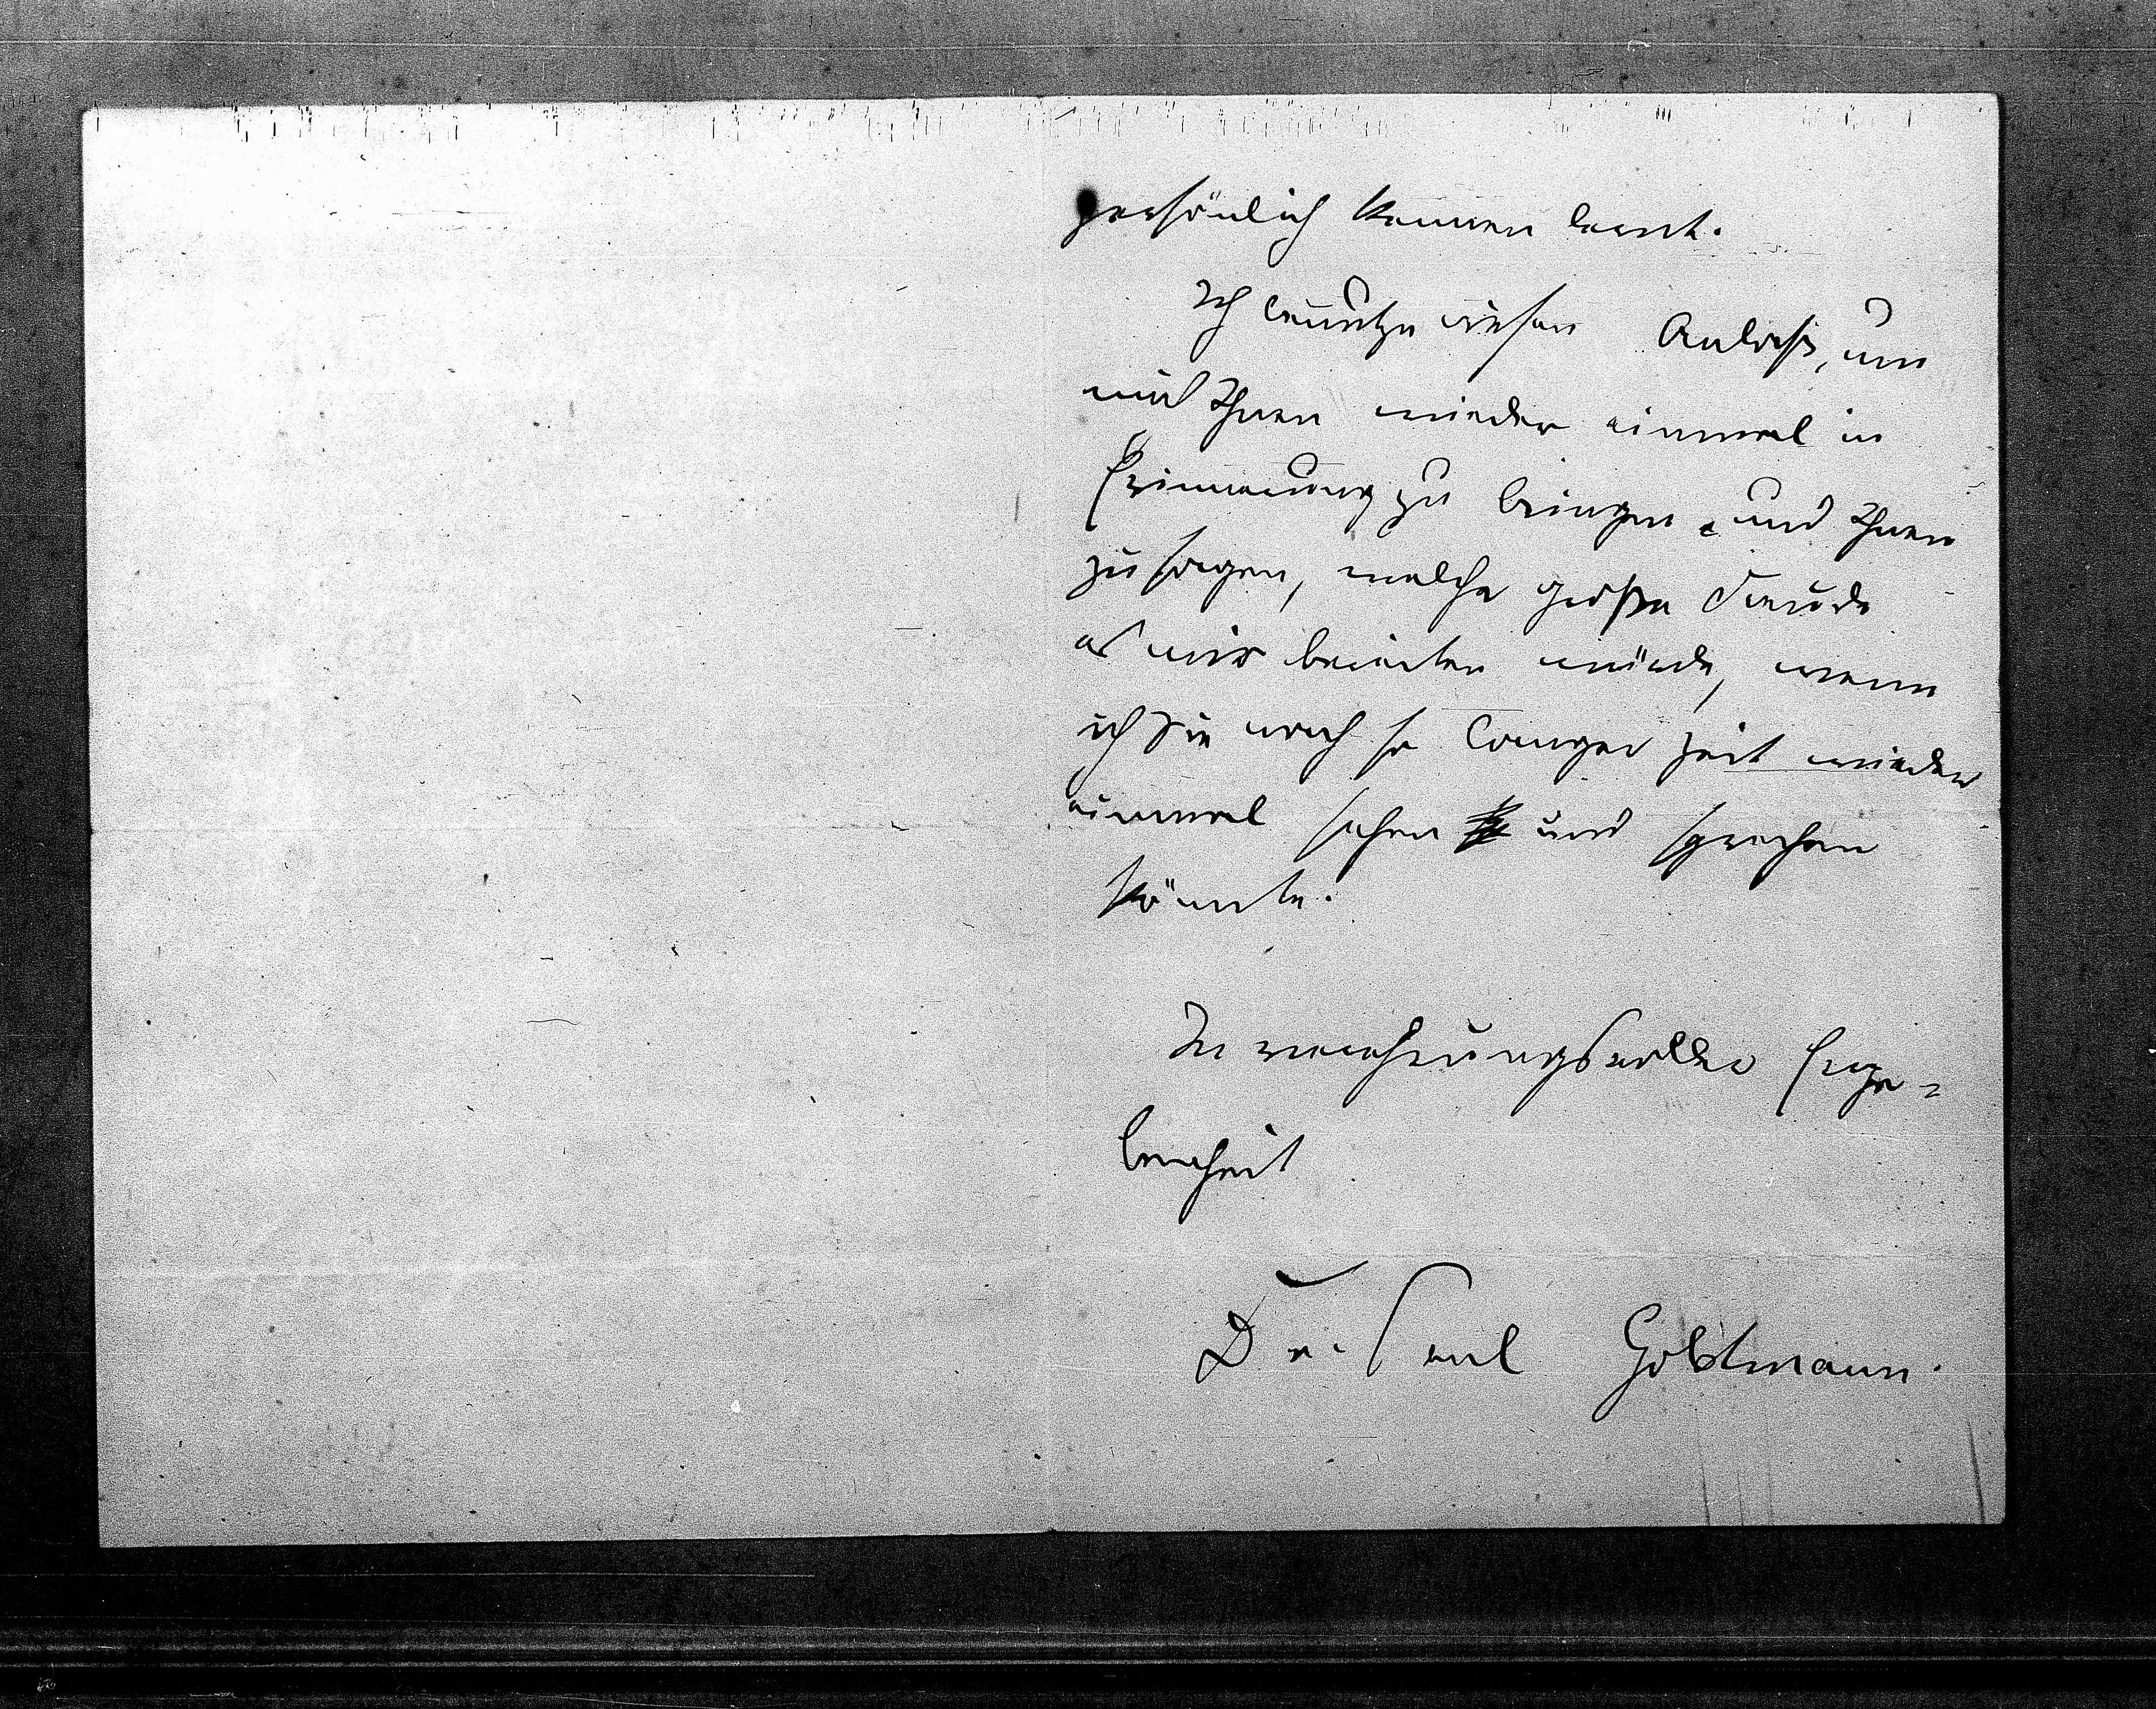 persönlich kennen lernt.
Ich benütze diesen Anlaß, um
mich Ihnen wieder einmal in
Erinnerung zu bringen und Ihnen
zu sagen, welche große Freude
es mir bereiten würde, wenn
ich Sie nach so langer Zeit wieder
einmal sehen und sprechen
könnte.
In verehrungsvoller Erge-
benheit
Dr. Paul Goldmann.